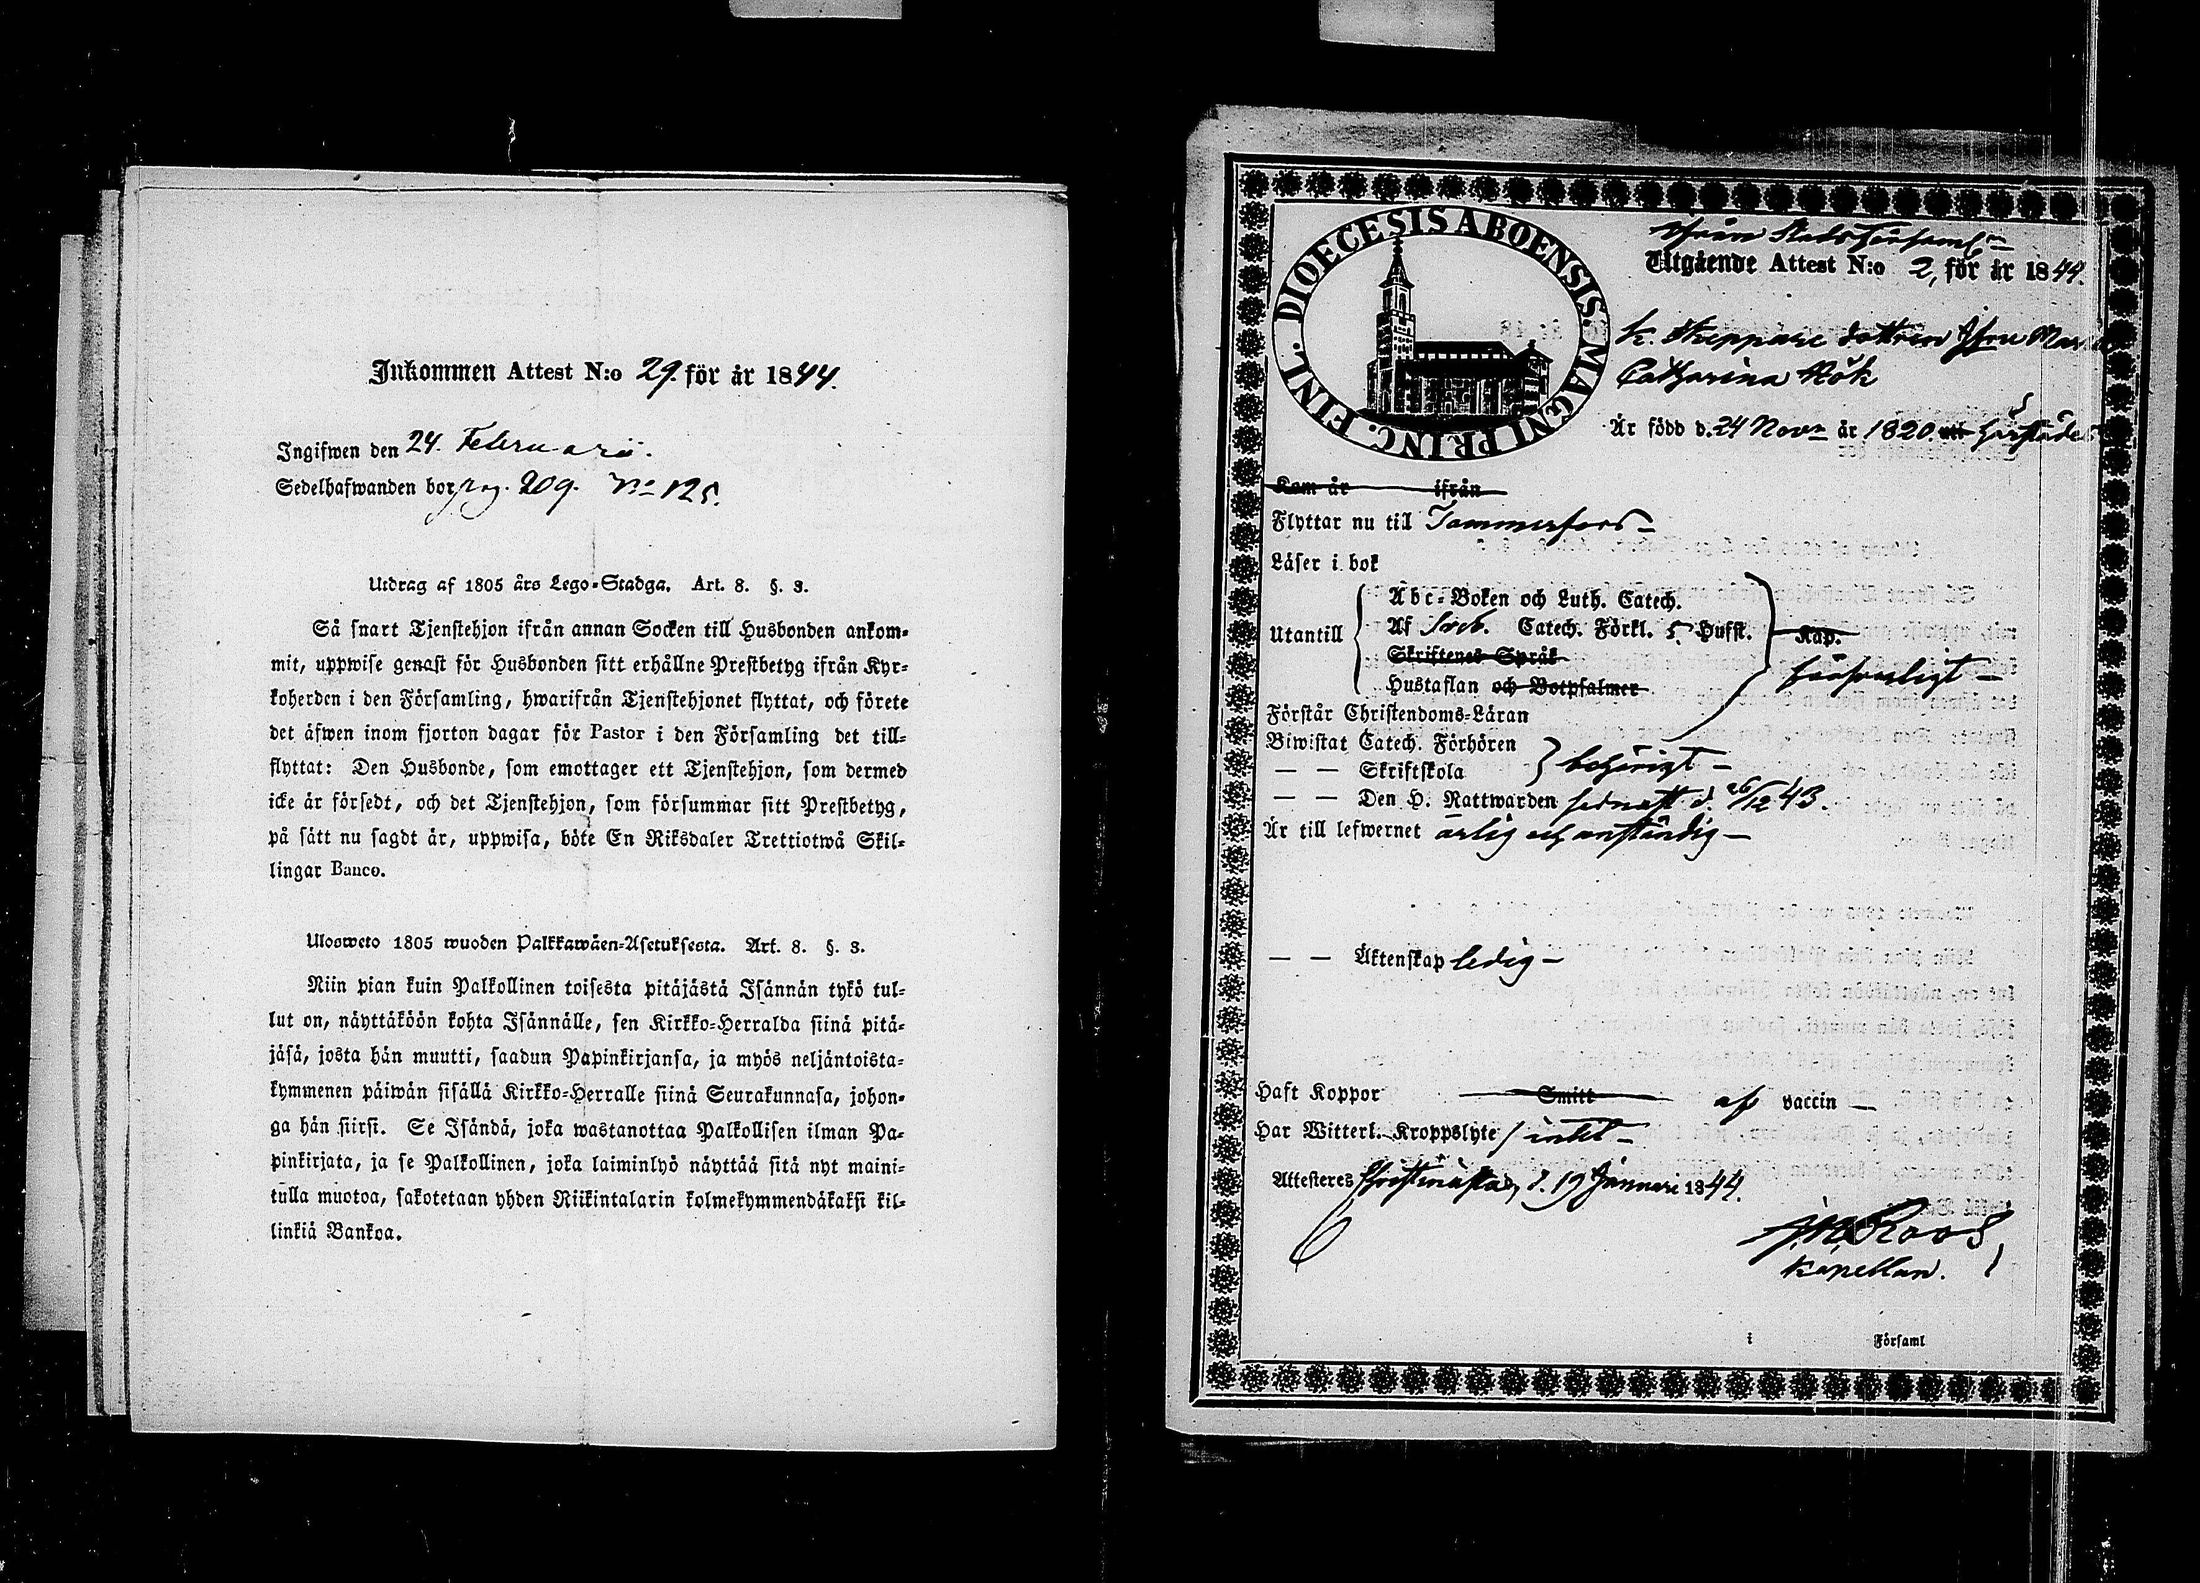 Inkommen Attest N:o 29. för år 1844.
Ingifwen den 24. Februarii.
Sedelhafwanden bor pag. 209. No 125.
Utdrag af 1805 års Lego-Stadga. Art. 8. §. 3.
Så snart Tjenstehjon ifrån annan Socken till Husbonden ankom-
mit, uppwise genast för Husbonden sitt erhållne Prestbetyg ifrån Kyr-
koherden i den Församling, hwarifrån Tjenstehjonet flyttat, och förete
det äfwen inom fjorton dagar för Pastor i den Församling det till-
flyttat: Den Husbonde, som emottager ett Tjenstehjon, som dermed
icke är försedt, och det Tjenstehjon, som försummar sitt Prestbetyg,
på sätt nu sagdt är, uppwisa, böte En Riksdaler Trettiotwå Skil-
lingar Banco.
Ulosweto 1805 wuoden Palkkawäen-Asetuksesta. Art. 8. §. 3.
Niin pian kuin Palkollinen toisesta pitäjästä Isännän tykö tul-
lut on, näyttäköön kohta Isännälle, sen Kirkko-Herralda siinä pitä-
jäsä, josta hän muutti, saadun Papinkirjansa, ja myös neljäntoista-
kymmenen päiwän sisällä Kirkko-Herralle siinä Seurakunnasa, johon-
ga hän siirsi. Se Isändä, joka wastanottaa Palkollisen ilman Pa-
pinkirjata, ja se Palkollinen, joka laiminlyö näyttää sitä nyt maini-
tulla muotoa, sakotetaan yhden Riikintalarin kolmekymmendäkaksi kil-
linkiä Bankoa.
FINL. DIOECESIS ABOENSIS. MAGNI PRINC.
ifrån Stadsförsaml:n
Utgående Attest N:o 2, för år 1844.
K. Skeppare dottren Jfru Maria
Catharina Hök
Är född d. 24 Novr år 1820 uti härstädes
Kom år ifrån
Flyttar nu till Tammerfors
Läser i bok
Utantill
Abc-Boken och Luth. Catech.
Af Catech. Förkl. 5 Hufst. Kap.
Skriftenes Språk
Hustaflan och Botpsalmer
försvarligt
Förstår Christendoms-Läran
Biwistat Catech. Förhören
— — Skriftskola
behörigt
— — Den H. Nattwarden sednast d. 26/12 43.
Är till lefwernet ärlig och anständig
— — Äktenskap ledig
Haft Koppor Smitt af vaccin
Har Witterl. Kroppslyte intet
Attesteres Christinæstad, d. 19 Januari 1844.
Roos,
Kapellan.
i Församl